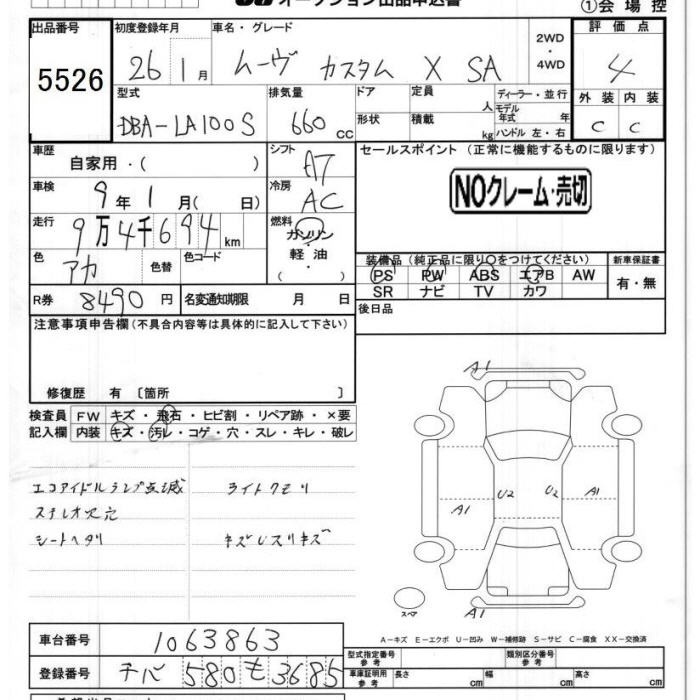 オークション出品申込書
①会場控
出品番号 初度登録年月 車名・グレード 2WD・4WD 評価点
5526 26 1月 ムーヴ カスタム X SA 4
型式 排気量 ドア 定員 人 ディーラー・並行 外装 内装
DBA-LA100S 660 cc 形状 積載 kg モデル年式 年 ハンドル 左・右 C C
車歴 自家用・( ) シフト AT セールスポイント (正常に機能するものに限ります)
車検 9年 1月( 日) 冷房 AC
NOクレーム・売切
走行 9万4千694km 燃料 ガソリン・軽油・( )
色 アカ 色替 色コード
装備品 (純正品に限り○をつけてください) 新車保証書
PS PW ABS エアB AW 有・無
SR ナビ TV カワ
R券 8490円 名変通知期限 月 日 後日品
注意事項申告欄(不具合内容等は具体的に記入して下さい)
修復歴 有 〔箇所 〕
検査員 FW キズ・飛石・ヒビ割・リペア跡・×要
記入欄 内装 キズ・汚レ・コゲ・穴・スレ・キレ・破レ
エコアイドルランプ点滅 ライトクモリ
ステレオ欠穴
シートヘタリ キズ有スリキズ
A1
U2 U2
A1 A1
スペア A1
A-キズ E-エクボ U-凹み W-補修跡 S-サビ C-腐食 XX-交換済
車台番号 1063863 型式指定番号 参考 類別区分番号 参考
登録番号 チバ 580 モ 3685 車庫証明用 参考 長さ cm 幅 cm 高さ cm